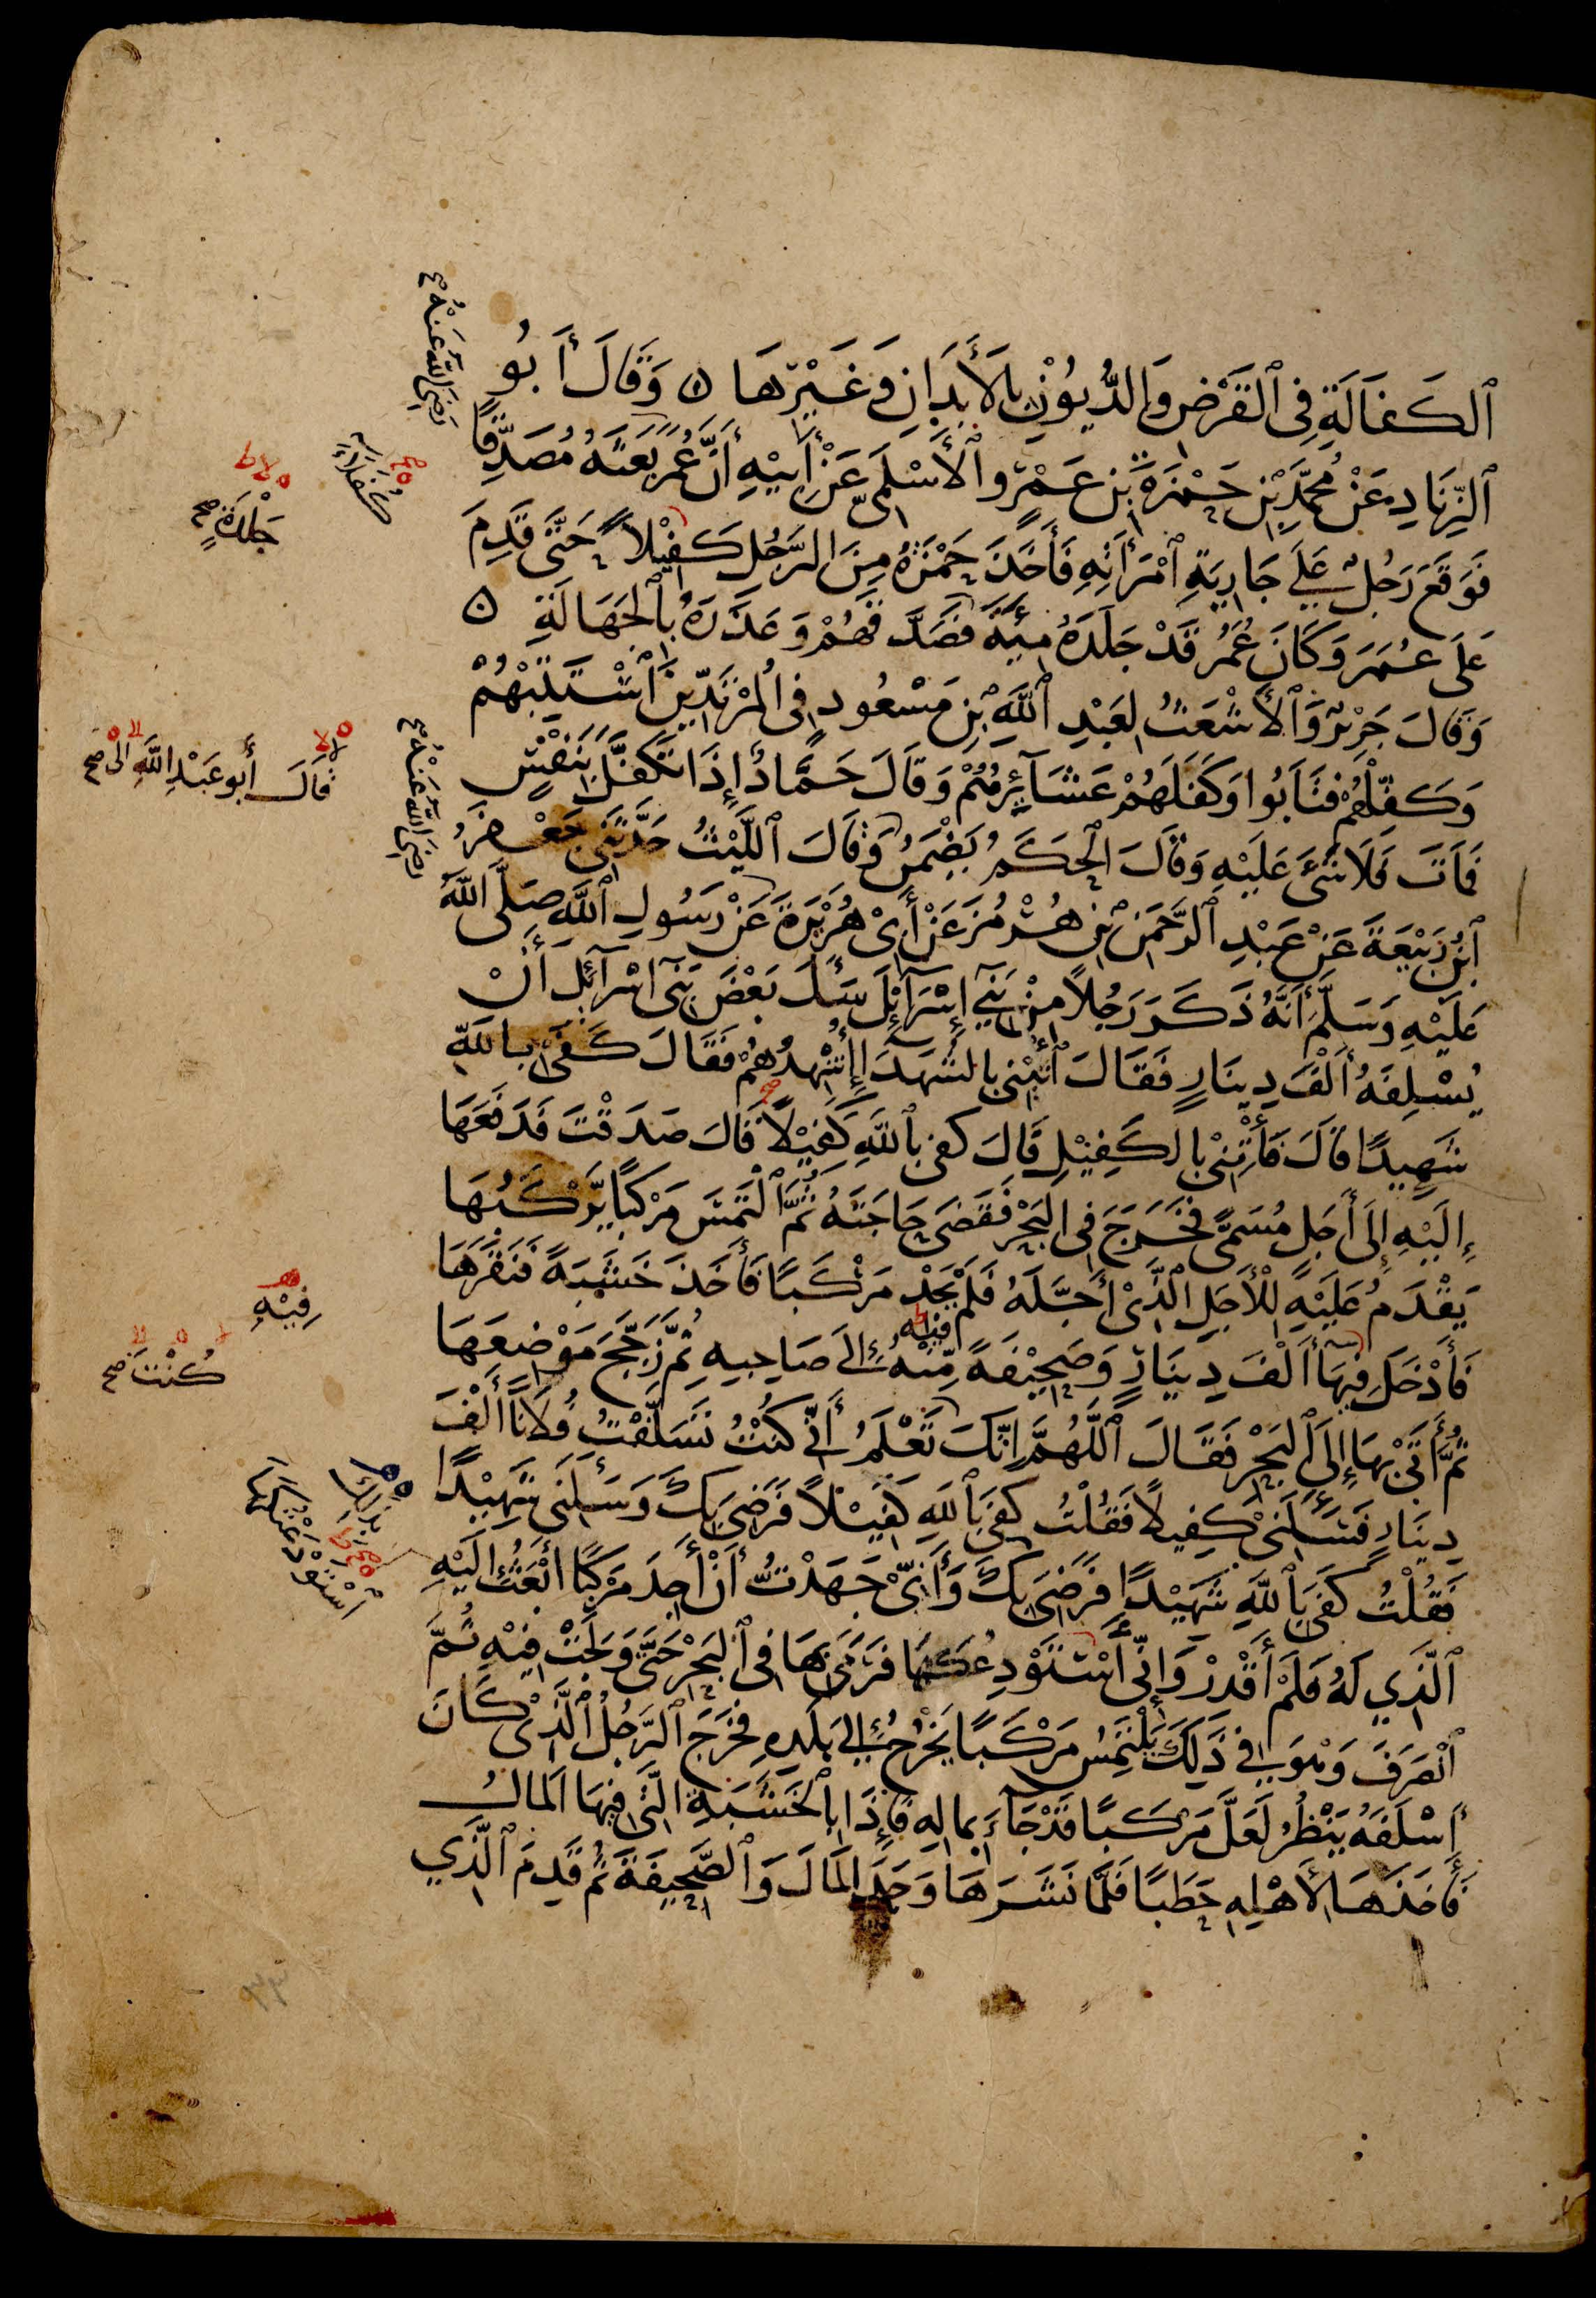 ٱلْكَفَالَةِ فِي ٱلْقَرْضِ وَالدُّيُوْنِ بِالأَبْدَانِ وَغَيْرِهَا ۝ وَقَالَ أَبُو
ٱلزِّنَادِ عَنْ مُحَمَّدِ بْنِ حَمْزَةَ بْنِ عَمْرٍو ٱلْأَسْلَمِيِّ عَنْ أَبِيْهِ أَنَّ عُمَرَ بَعَثَهُ مُصَدِّقًا
فَوَقَعَ رَجُلٌ عَلَى جَارِيَةِ ٱمْرَأَتِهِ فَأَخَذَ حَمْزَةُ مِنَ الرَّجُلِ كَفِيْلاً حَتَّى قَدِمَ
عَلَى عُمَرَ وَكَانَ عُمَرُ قَدْ جَلَدَهُ مِئَةً فَصَدَّقَهُمْ وَعَذَرَهُ بِٱلْجَهَالَةِ ۝
وَقَالَ جَرِيْرٌ وَٱلْأَشْعَثُ لِعَبْدِ ٱللَّهِ بْنِ مَسْعُودٍ فِي الْمُرْتَدِّيْنَ ٱسْتَتِبْهُمْ
وَكَفِّلْهُمْ فَتَابُوا وَكَفَلَهُمْ عَشَآئِرُهُمْ وَقَالَ حَمَّادٌ إِذَا تَكَفَّلَ بِنَفْسٍ
فَمَاتَ فَلَا شَيْءَ عَلَيْهِ وَقَالَ ٱلْحَكَمُ يَضْمَنُ وَقَالَ ٱللَّيْثُ حَدَّثَنِي جَعْفَرُ
ٱبْنُ رَبِيْعَةَ عَنْ عَبْدِ ٱلرَّحْمَنِ بْنِ هُرْمُزَ عَنْ أَبِيْ هُرَيْرَةَ عَنْ رَسُولِ ٱللَّهِ صَلَّى اللَّهُ
عَلَيْهِ وَسَلَّمَ أَنَّهُ ذَكَرَ رَجُلاً مِنْ بَنِيْ إِسْرَآئِلَ سَأَلَ بَعْضَ بَنِيْ اسْرَآئِلَ أَنْ
يُسْلِفَهُ أَلْفَ دِينَارٍ فَقَالَ ٱئْتِنِيْ بِالشُّهَدَآءِ أُشْهِدُهُمْ فَقَالَ كَفَىْ بِاللَّهِ
شَهِيدًا قَالَ فَأْتِنِيْ بِالْكَفِيْلِ قَالَ كَفَى بِٱللَّهِ كَفِيْلاً قَالَ صَدَقْتَ فَدَفَعَهَا
إِلَيْهِ إِلَى أَجَلٍ مُسَمًّى فَخَرَجَ فِي الْبَحْرِ فَقَضَى حَاجَتَهُ ثُمَّ ٱلْتَمَسَ مَرْكَبًا يَرْكَبُهَا
يَقْدَمُ عَلَيْهِ لِلْأَجَلِ الَّذِيْ أَجَّلَهُ فَلَمْ يَجِدْ مَرْكَبًا فَأَخَذَ خَشَبَةً فَنَقَرَهَا
فَأَدْخَلَ فِيهَآ أَلْفَ دِيْنَارٍ وَصَحِيْفَةً مِنْهُ إِلَى صَاحِبِهِ ثُمَّ زَجَّجَ مَوْضِعَهَا
فيه
ثُمَّ أَتَى بِهَا إِلَى ٱلْبَحْرِ فَقَالَ ٱللَّهُمَّ إِنَّكَ تَعْلَمُ أَنِّي كُنْتُ تَسَلَّفْتُ فُلَانًا أَلْفَ
دِينَارٍ فَسَأَلَنِيْ كَفِيلاً فَقُلْتُ كَفَى بِٱللَّهِ كَفِيْلاً فَرَضِيَ بِكَ وَسَأَلَنِي شَهِيْدًا
فَقُلْتُ كَفَى بِٱللَّهِ شَهِيْدًا فَرَضِيَ بِكَ وَأَنِّيْ جَهَدْتُ أَنْ أَجِدَ مَرْكَبًا أَبْعَثُ إِلَيْهِ
ٱلَّذِي لَهُ فَلَمْ أَقْدِرْ وَإِنِّي أَسْتَوْدِعُكَهَا فَرَمَى بِهَا فِي ٱلْبَحْرِ حَتَّى وَلَجَتْ فِيْهِ ثُمَّ
ٱنْصَرَفَ وَهْوَ فِي ذَلِكَ يَلْتَمِسُ مَرْكَبًا يَخْرُجُ إِلَى بَلَدِهِ فَخَرَجَ ٱلرَّجُلُ ٱلَّذِيْ كَانَ
أَسْلَفَهُ يَنْظُرُ لَعَلَّ مَرْكَبًا قَدْ جَآءَ بِمَالِهِ فَإِذَا بِٱلْخَشَبَةِ الَّتِي فِيهَا الْمَالُ
فَأَخَذَهَا لِأَهْلِهِ حَطَبًا فَلَمَّا نَشَرَهَا وَجَدَ الْمَالَ وَٱلصَّحِيفَةَ ثُمَّ قَدِمَ ٱلَّذِي
رَضِيَ اللَّهُ عَنْهُ
كُفَلَاءَ
جَلْدَةٍ صح
قَالَ أَبُو عَبْدِ اللَّهِ الى صح
رَضِيَ اللَّهُ عَنْهُ
فِيْهِ
كُنْتَ صح
بِذَلِكَ
ٱسْتَوْدَعْتُكَهَا